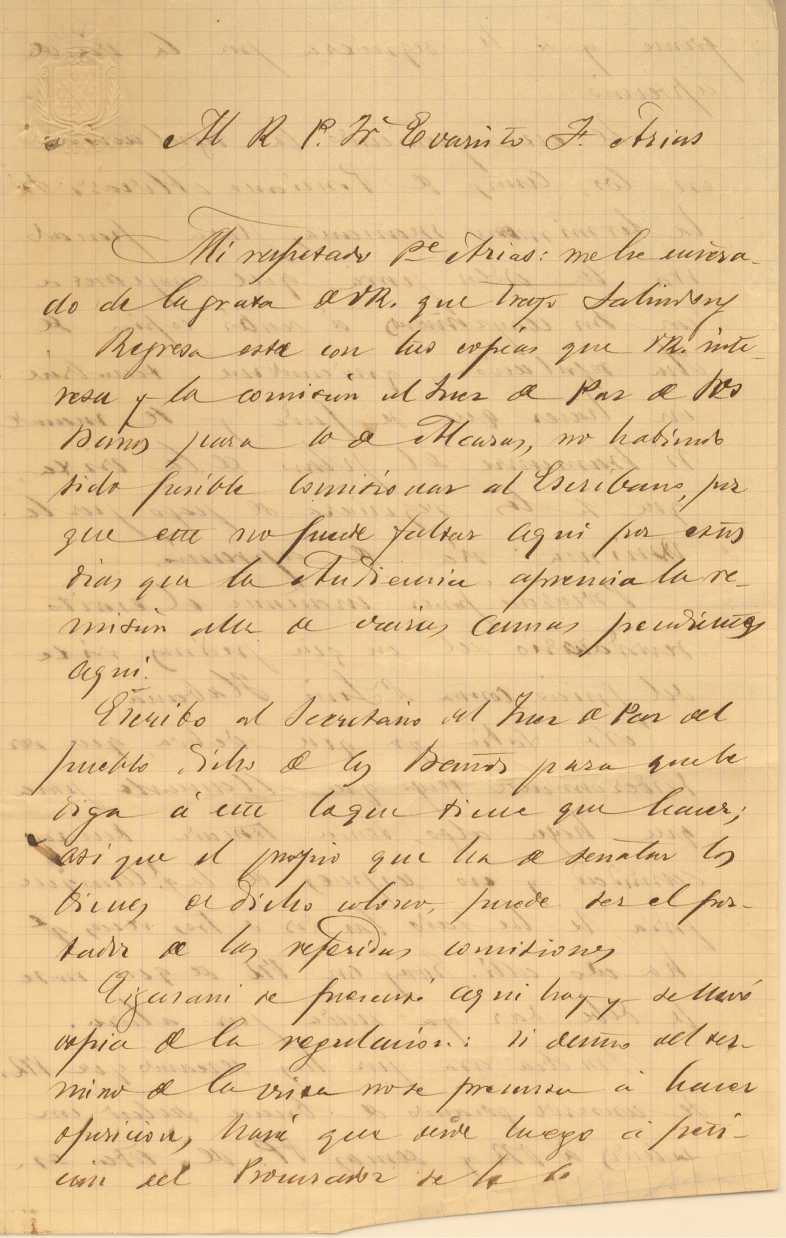 M R P. Fr Evaristo F. Arias
Mi respetado Pe Arias: me he entera-
do de la grata de VR. que trajo Salinders
Regresa este con las copias que VR. inte-
resa y la comision al Juez de Paz de los
Baños para lo de Alcaras, no habiendo
sido posible comisionar al Escribano, por
que este no puede faltar aqui por estos
dias que la Audiencia apremia la re-
mision alla de varias causas pendientes
aqui.
Escribo al Secretario del Juez de Paz del
pueblo dicho de los Baños para que le
diga á este lo que tiene que hacer;
asi que el propio que ha de señalar los
bienes de dicho colono, puede ser el por-
tador de las referidas comisiones
se presentó aqui hoy y se llevó
copia de la regulacion: si dentro del ter-
mino de la vista no se presenta á hacer
oposicion, hará que desde luego á peti-
cion del Procurador se le